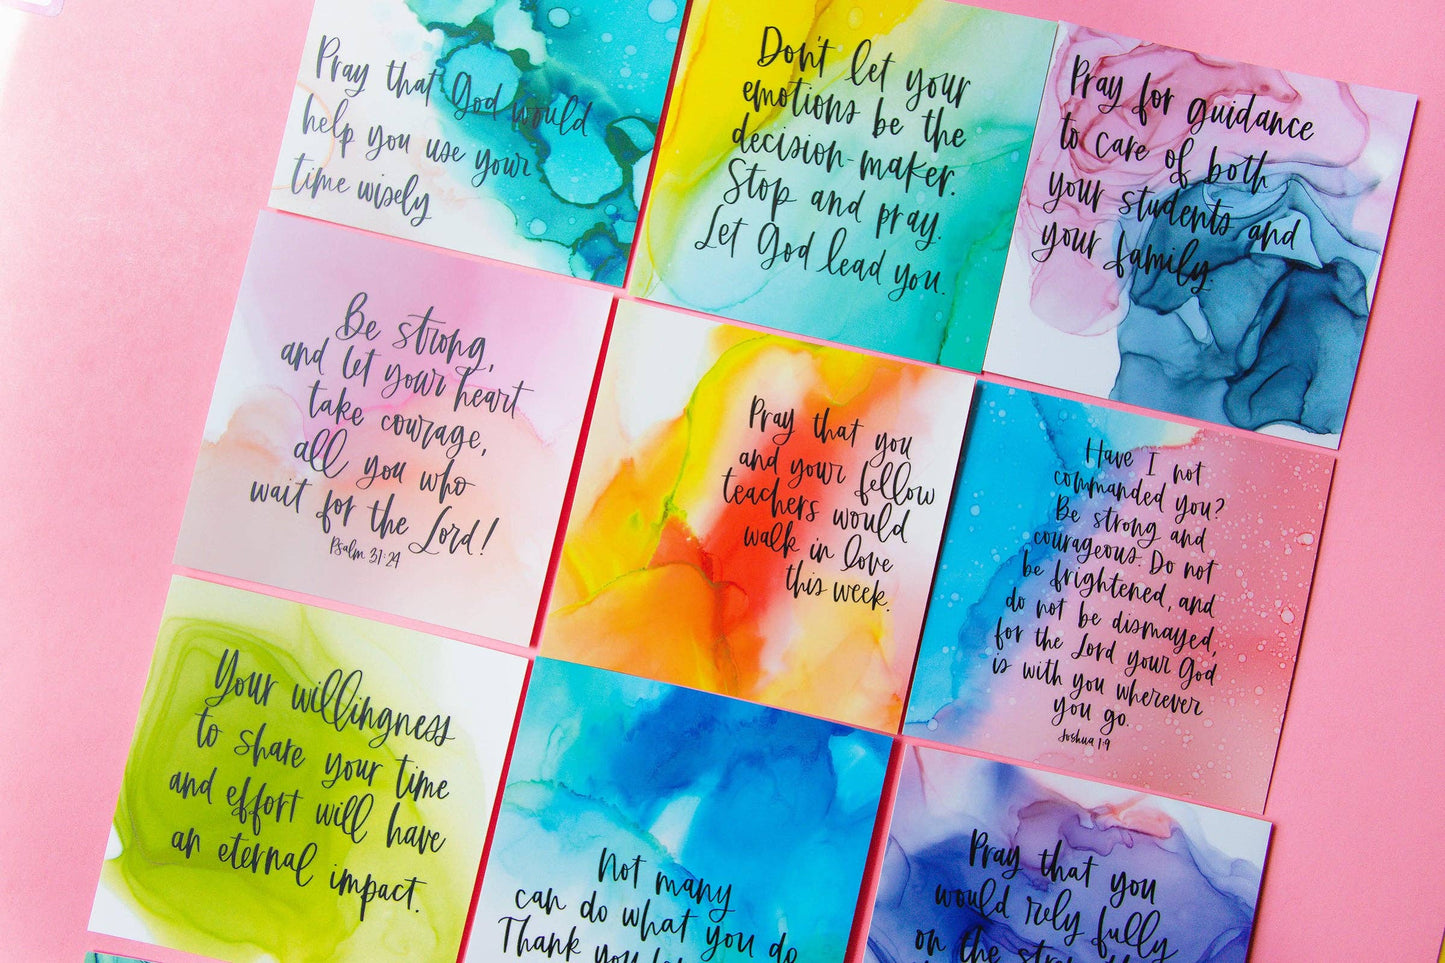 Pray that God would
help you use your
time wisely
Don't let your
emotions be the
decision-maker.
Stop and pray.
Let God lead you.
Pray for guidance
to care of both
your students and
your family.
Be strong,
and let your heart
take courage,
all you who
wait for the Lord!
Psalm 31:24
Pray that you
and your fellow
teachers would
walk in love
this week.
Have I not
commanded you?
Be strong and
courageous. Do not
be frightened, and
do not be dismayed,
for the Lord your God
is with you wherever
you go.
Joshua 1:9
Your willingness
to share your time
and effort will have
an eternal impact.
Not many
can do what you do
Thank you
Pray that you
would rely fully
on the